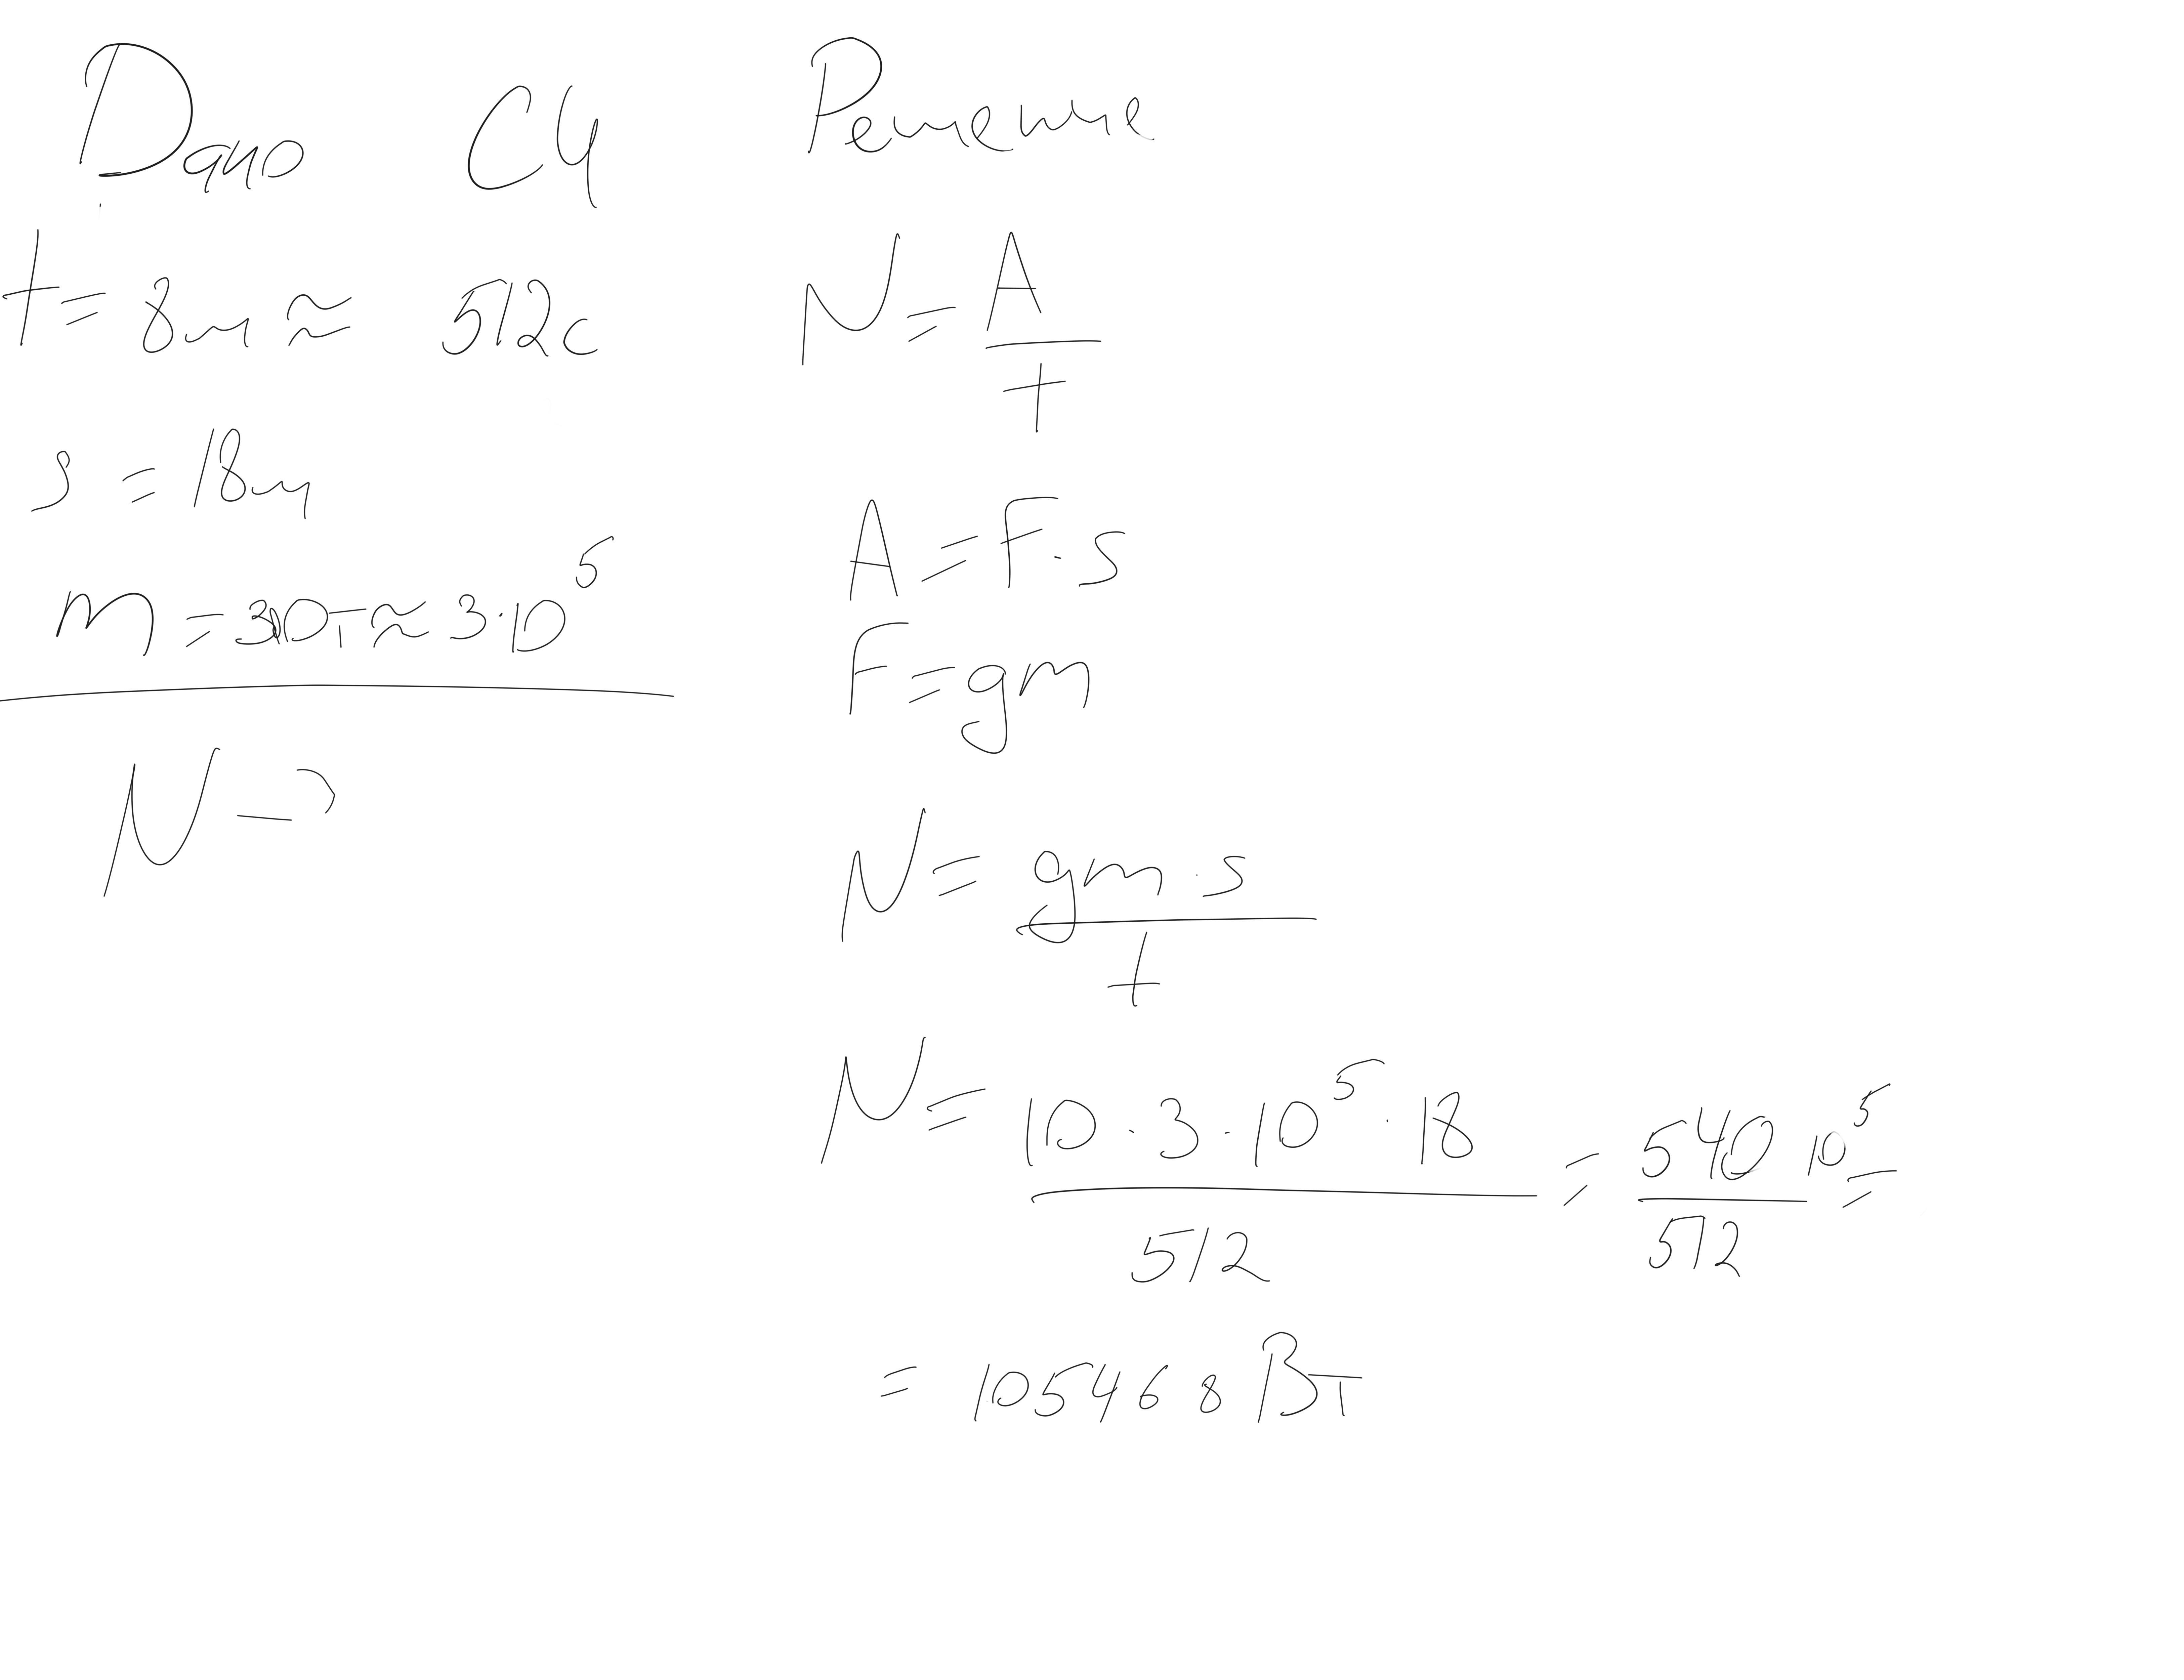 Дано СИ Решение
t = 8м ≈ 512с
s = 18м
m = 30т ≈ 3·10⁵
N — ?
N = A / t
A = F · s
F = gm
N = gm · s / t
N = 10 · 3 · 10⁵ · 18 / 512 = 540 10⁵ / 512 =
= 105468 Вт